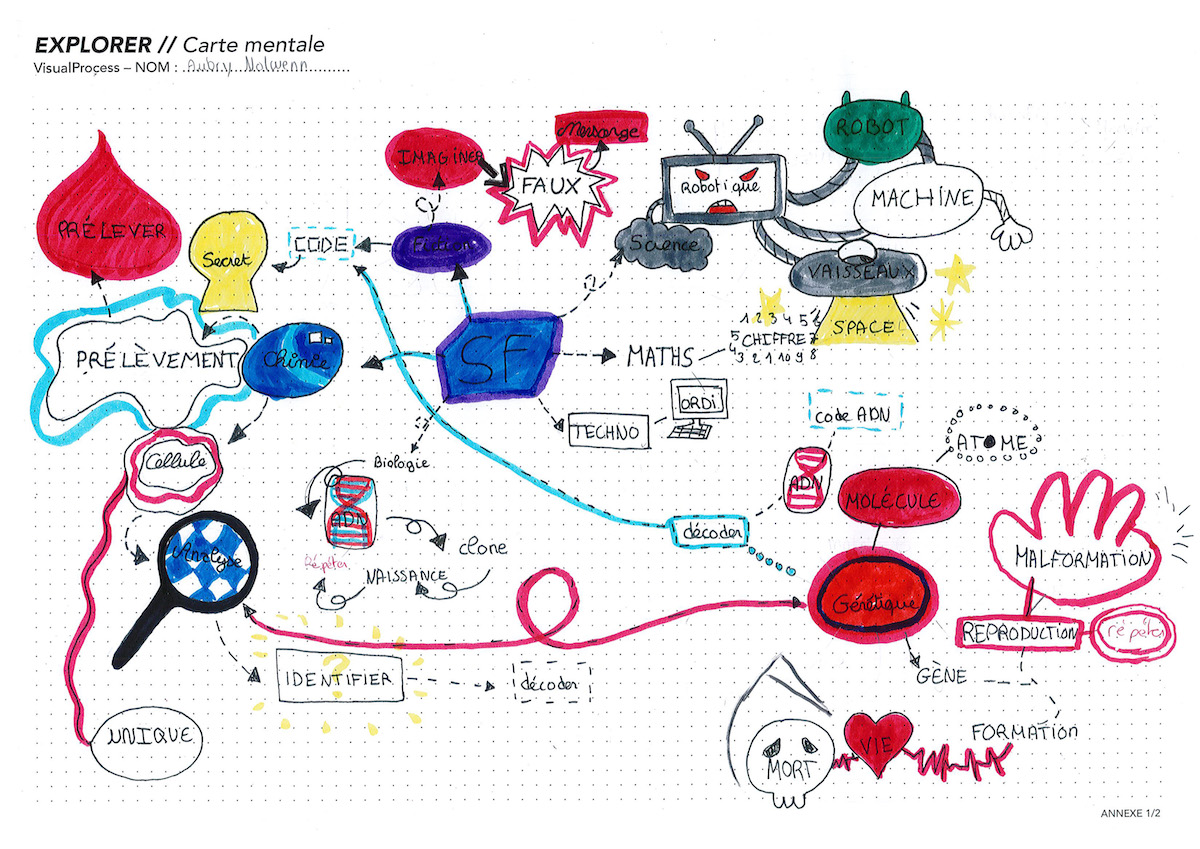 EXPLORER // Carte mentale
VisualProçess – NOM : Aubry Nolwenn
Mensonge
IMAGINER
FAUX
ROBOT
Robotique
MACHINE
PRÉLEVER
Secret
CODE
Fiction
Science
VAISSEAUX
SPACE
1 2 3 4 5 6
5 CHIFFRE 7
4 3 2 1 10 9 8
PRÉLÈVEMENT
Chimie
SF
MATHS
ORDi
TECHNO
code ADN
ATOME
Cellule
Biologie
ADN
ADN
MOLÉCULE
décoder
Analyse
clone
Répéter
NAISSANCE
MALFORMATION
Génétique
REPRODUCTION
répéter
GÈNE
?
IDENTIFIER
décoder
UNIQUE
FORMATION
VIE
MORT
ANNEXE 1/2